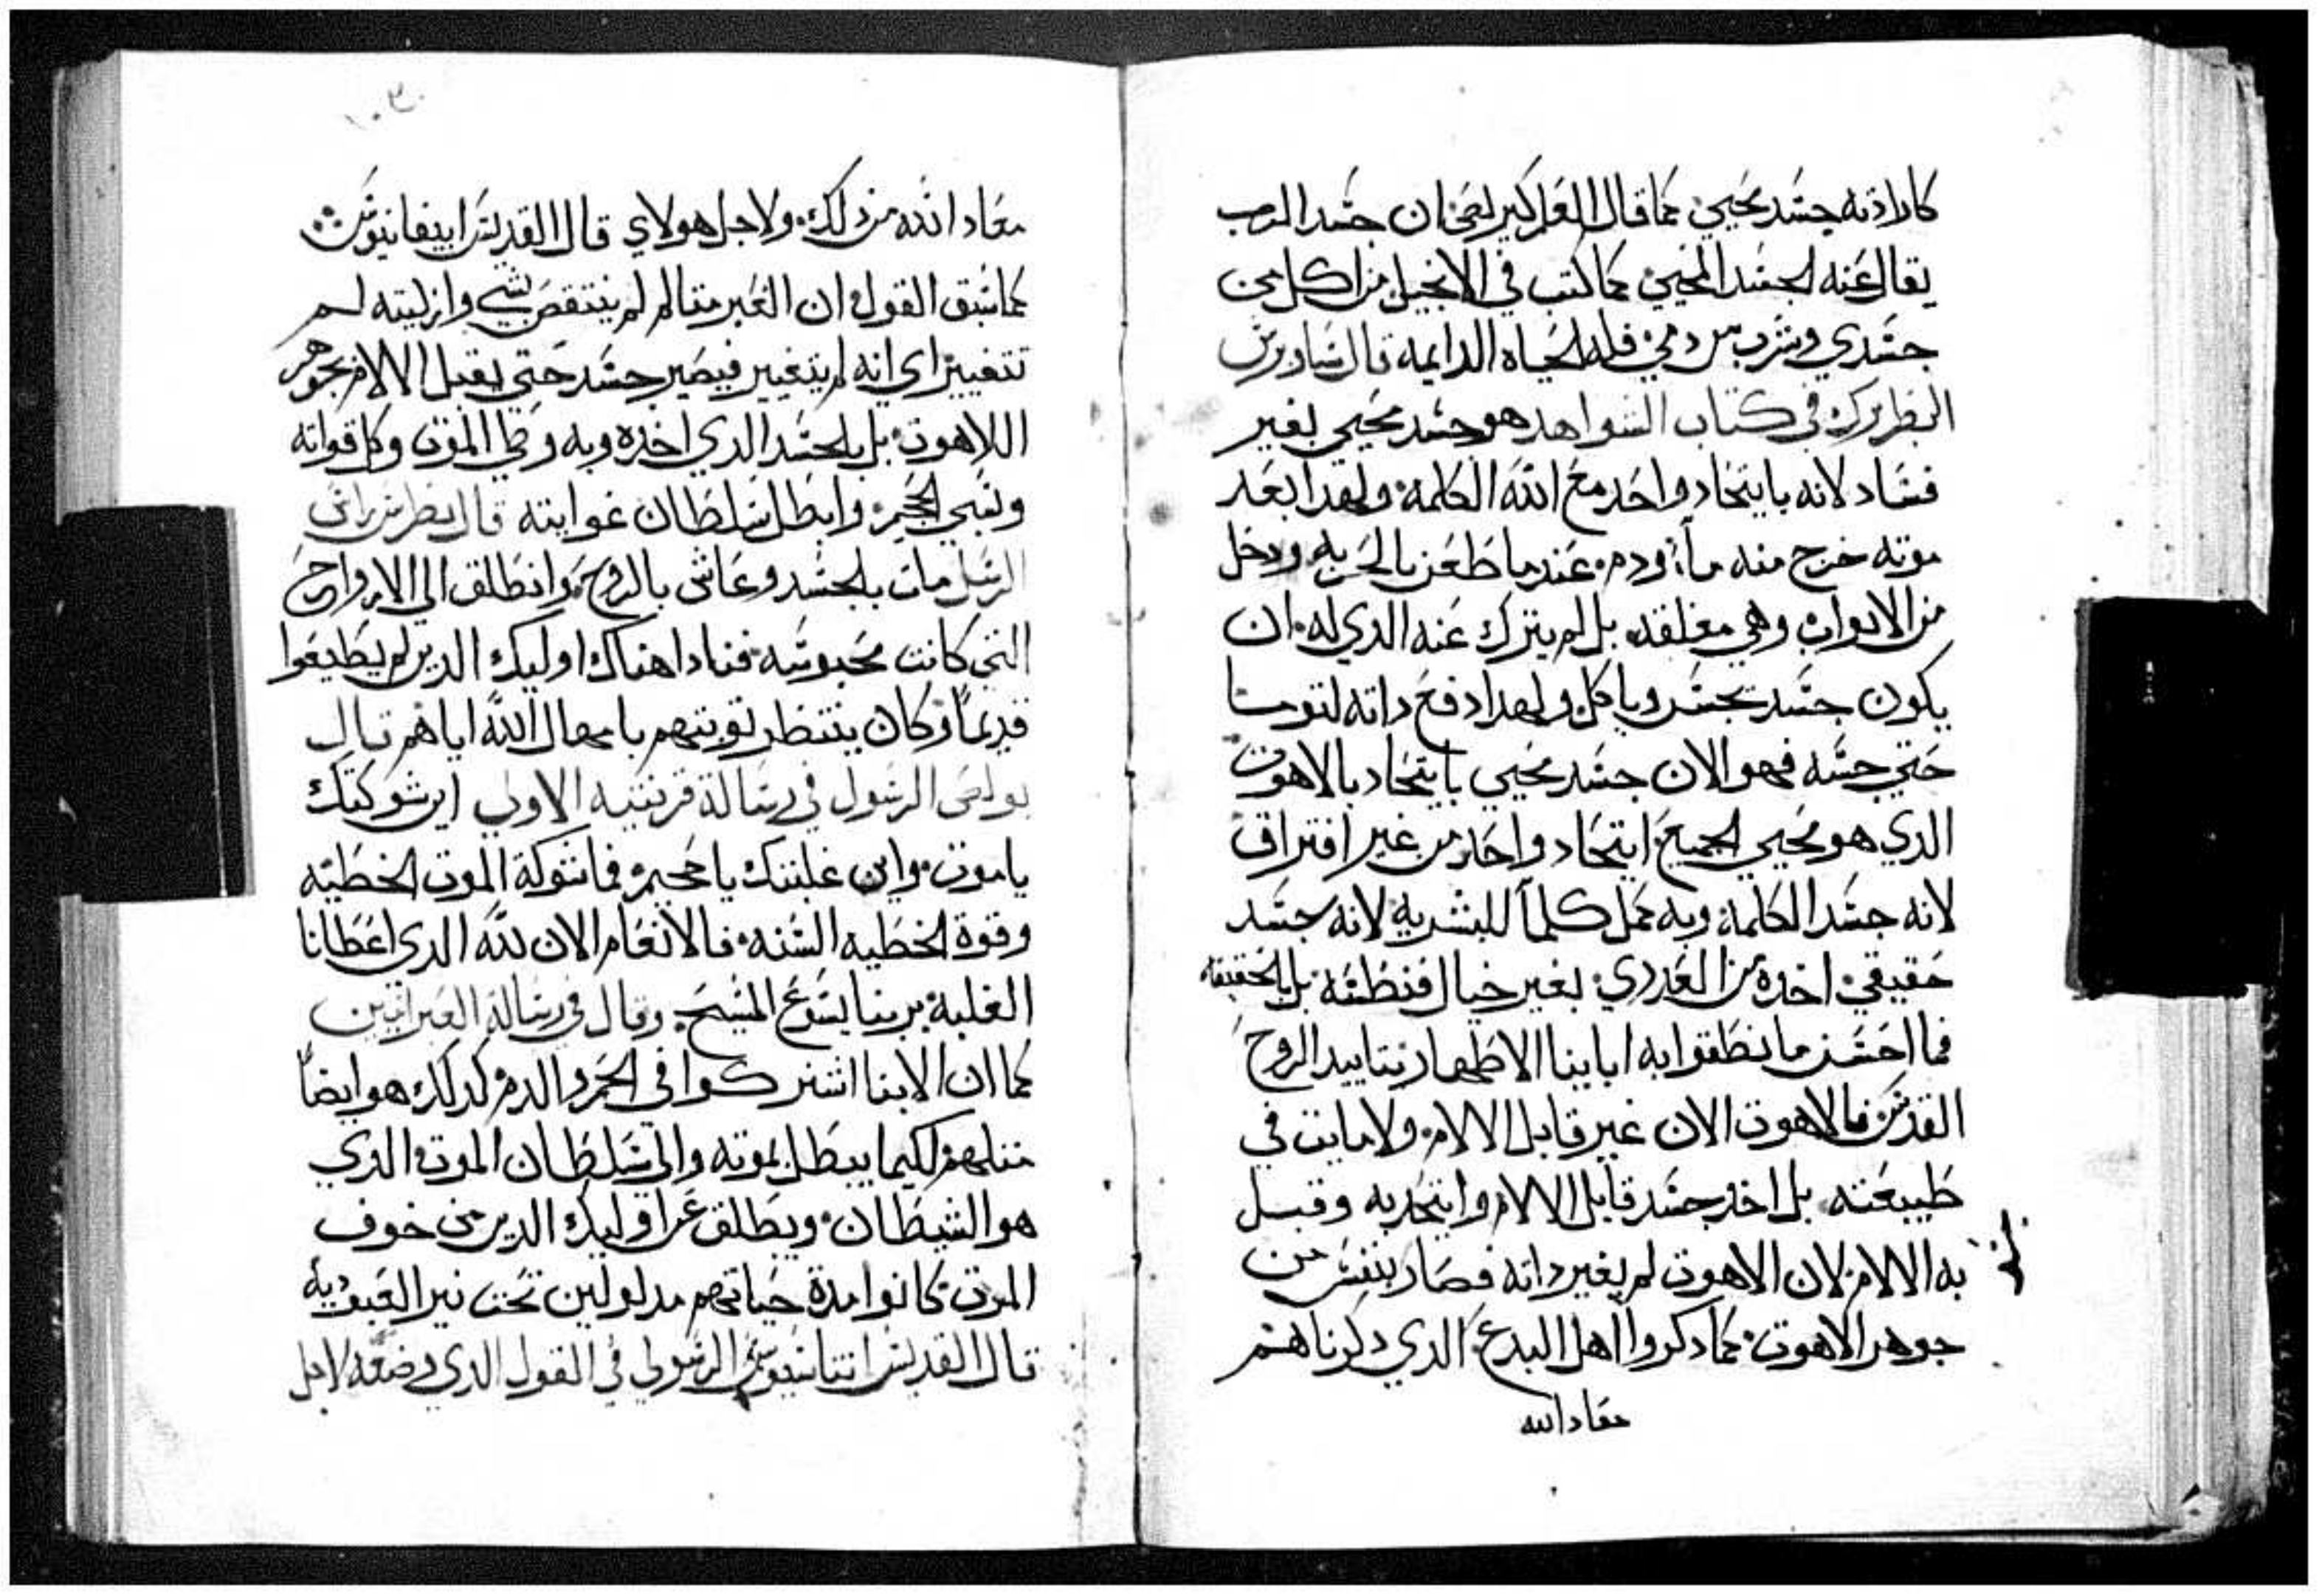 كارادته جسد محيي كما قال العلم كيرلص ان جسد الرب
يقال عنه الجسد المحيي كما كتب في الانجيل من اكل من
جسدي وشرب من دمي فله الحياه الدايمه قال ساويرس
البطريرك في كتاب الشواهد هو جسد محيي بغير
فساد لانه بايتحاد واحد مع الله الكلمة ولهدا بعد
موته خرج منه مآء ودم عند ما طعن بالحربه ودخل
من الابواب وهي مغلقه بل لم يترك عنه الدي له ان
يكون جسد تجسد وياكل ولهدا دفع داته لتوما
حتي جسه فهو الان جسد محيي بايتحاد بالاهوت
الدي هو محيي الجميع ايتحاد واحد من غير افتراق
لانه جسد الكلمة وبه عمل كلما للبشريه لانه جسد
حقيقي اخده من العدري بغير خيال فنطسه بل بالحقيقه
فما احسن ما نطقوا به اباينا الاطهار بتاييد الروح
القدس فالاهوت الان غير قابل الالام ولا مايت في
طبيعته بل اخد جسد قابل الالام وايتحد به وقبل
به الالام لان الاهوت لم يغير داته فصار بنفس من
جوهر الاهوت كما دكروا اهل البدع الدي دكرناهم
معاد الله
معاد الله من دلك ولاجل هولاي قال القديس ابيفانيوس
كما سبق القول ان الغير متالم لم ينتقص بشي وازليته لم
تتغيير اي انه لم يتغيير فيصير جسد حتي يقبل الالام بجوهر
اللاهوت بل بالجسد الدي اخده وبه وطي الموت وكل قواته
وسبي الجحيم وابطل سلطان غوايته قال بطرس راس
الرسل مات بالجسد وعاش بالروح وانطلق الي الارواح
التي كانت محبوسه فنادا هناك اوليك الدين لم يطيعوا
قديماً وكان ينتظر توبتهم بامهال الله اياهم قال
بولص الرسول في رسالة قرنتيه الاولي اين شوكتك
ياموت واين غلبتك يا جحيم فما شوكة الموت الخطيه
وقوة الخطيه السنه فالانعام الان لله الدي اعطانا
الغلبة بربنا يسوع المسيح وقال في رسالة العبرانيين
كما ان الابنا اشتركوا في اللحم والدم كدلك هو ايضاً
مثلهم لكيما يبطل بموته والي سلطان الموت الدي
هو الشيطان ويطلق عن اوليك الدين من خوف
الموت كانوا مدة حياتهم مدلولين تحت نير العبوديه
قال القديس اتناسيوس الرسولي في القول الدي وضعه لاجل